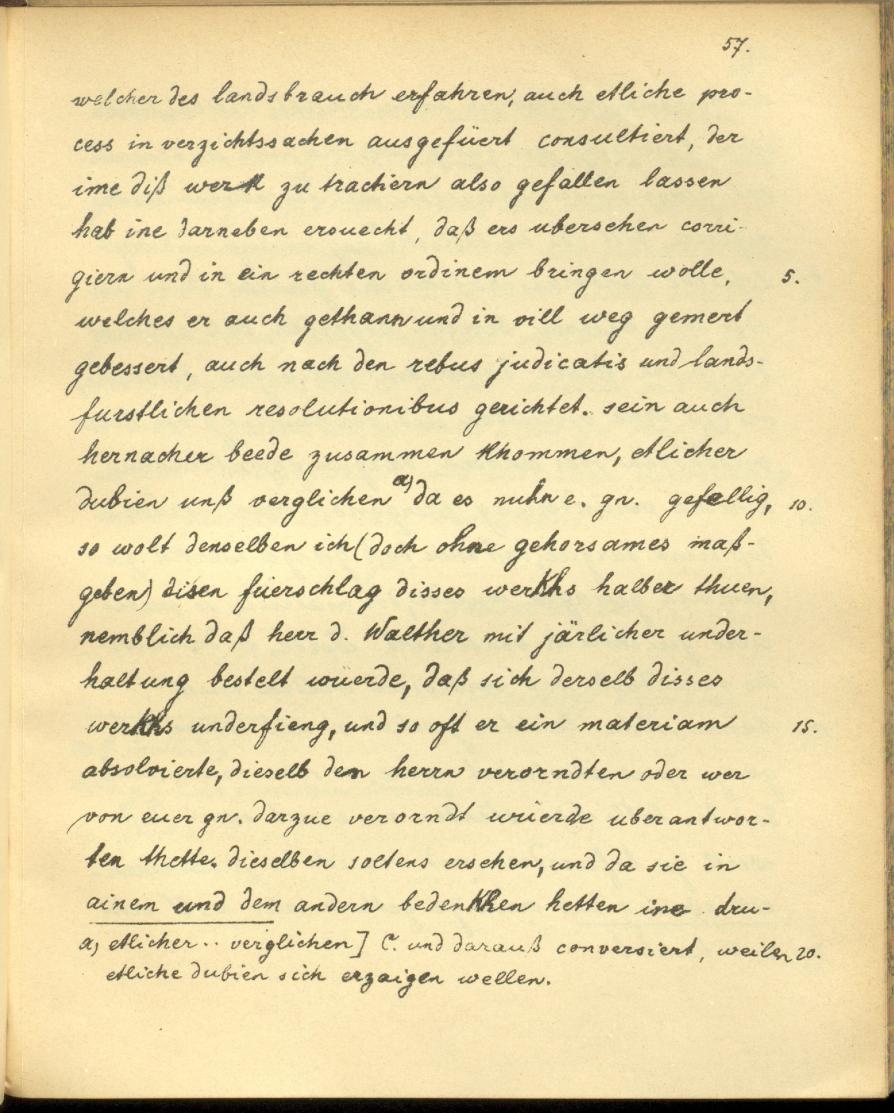 57.
welcher des landsbrauch erfahren, auch etliche pro-
cess in verzichtssachen ausgefüert consultiert, der
ime diß werk zu tractiern also gefallen lassen
hab ine darneben ersuecht, daß ers ubersehen corri-
giern und in ein rechten ordinem bringen wolle, 5.
welches er auch gethann und in vill weg gemert
gebessert, auch nach den rebus judicatis und lands-
furstlichen resolutionibus gerichtet. sein auch
hernacher beede zusammen khommen, etlicher
dubien unß verglichen a) da es nuhn e. gn. gefellig, 10.
so wolt denselben ich (doch ohne gehorsames maß-
geben) disen füerschlag disses werkhs halber thuen,
nemblich daß herr d. Walther mit järlicher under-
haltung bestelt wüerde, daß sich derselb disses
werkhs underfieng, und so oft er ein materiam 15.
absolvierte, dieselb den herrn verorndten oder wer
von euer gn. darzue verorndt wüerde uberantwor-
ten thette. dieselben soltens ersehen, und da sie in
ainem und dem andern bedenkhen hetten ine dru-
a, etlicher .. verglichen] C. und darauß conversiert, weilen 20.
etliche dubien sich erzaigen wellen.